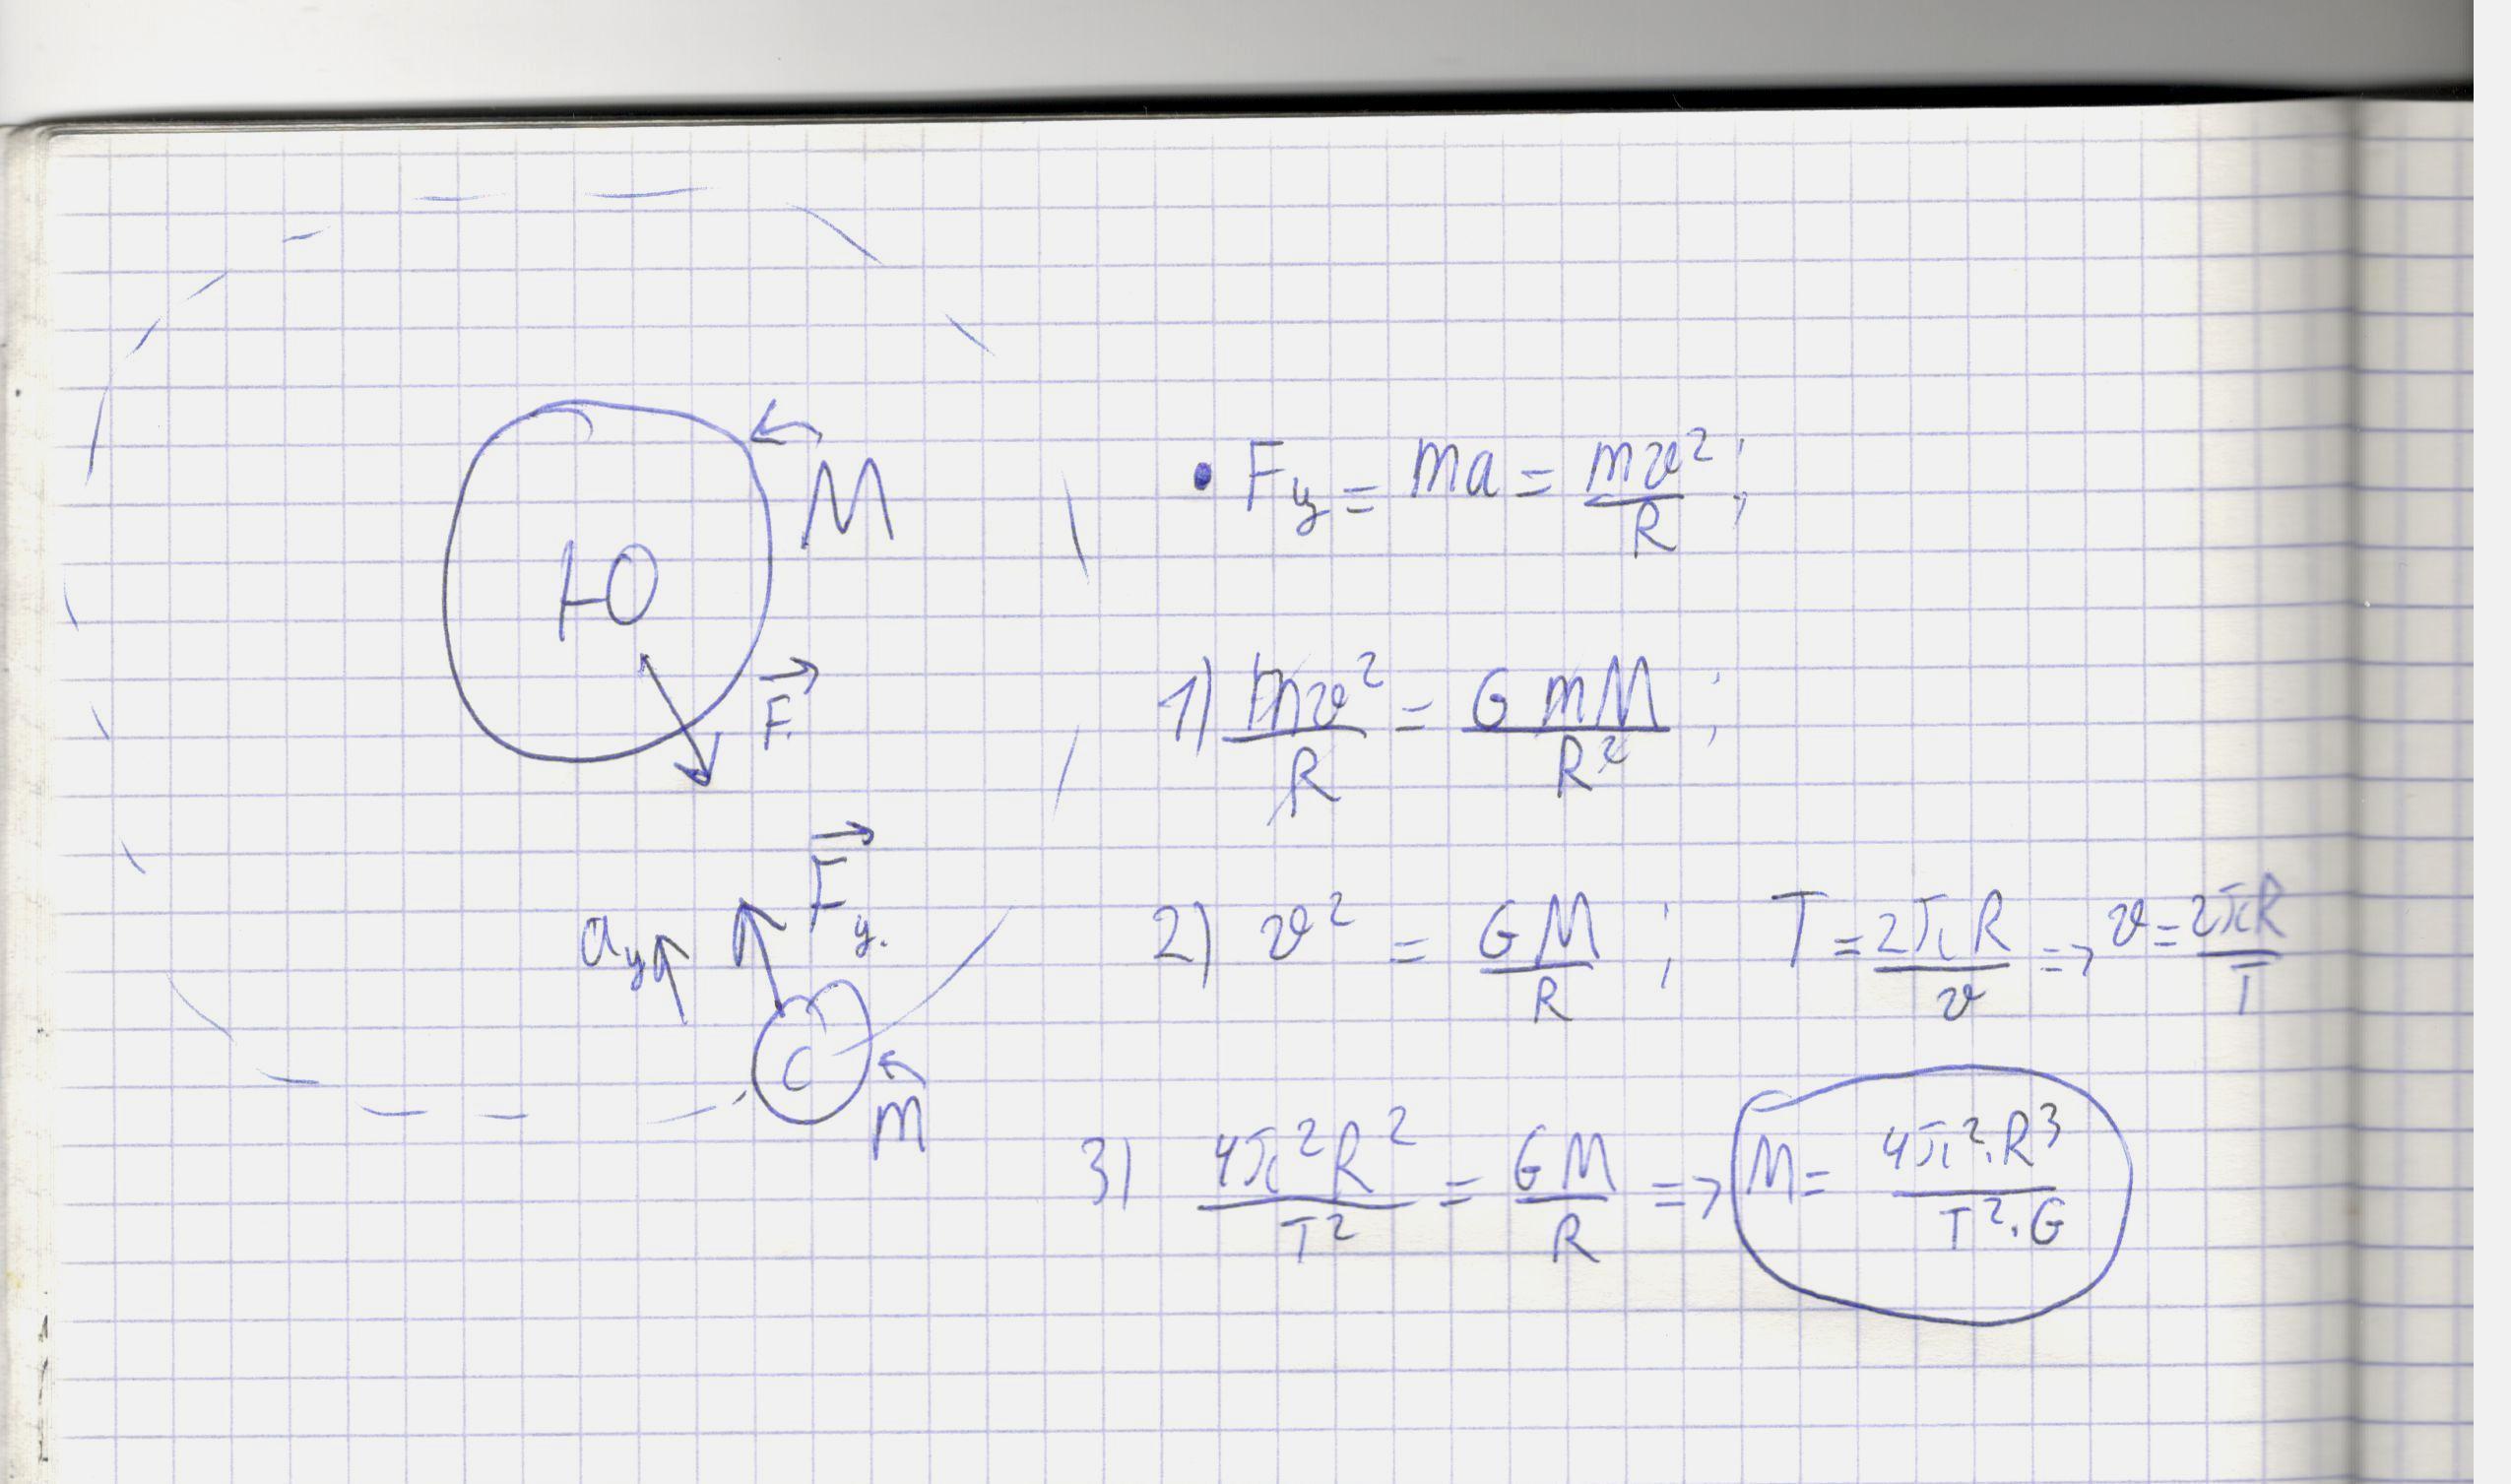 M
Ю
F⃗
F⃗у.
aу
С
m
• Fу = ma = mv²/R ;
1) mv²/R = G mM/R² ;
2) v² = GM/R ; T = 2πR/v => v = 2πR/T
3) 4π²R²/T² = GM/R => M = 4π²·R³/T²·G